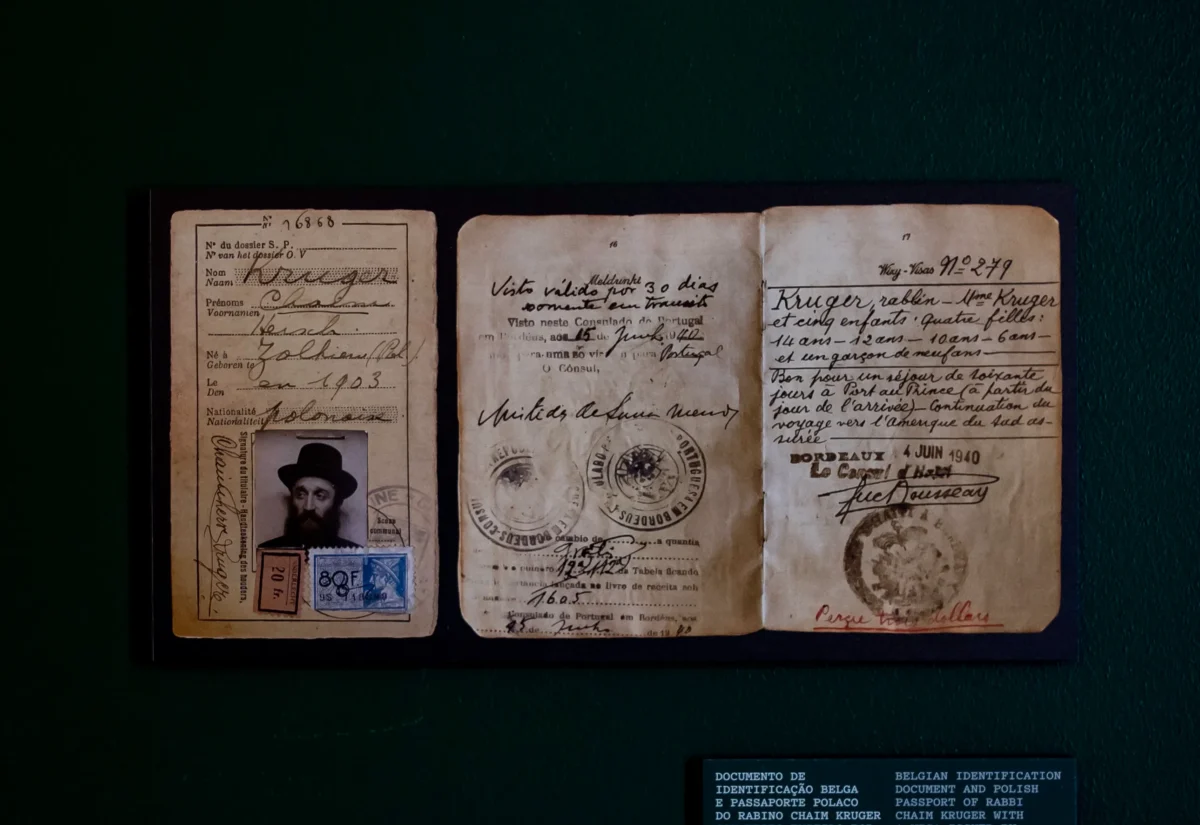 Nº 76868
Nº du dossier S. P.
Nº van het dossier O. V
Nom
Naam
Kruger
Prénoms
Voornamen
Chaim
Hersch
Né à
Geboren te
Zolkiew (Pol.)
Le
Den
en 1903
Nationalité
Nationaliteit
polonaise
Signature du titulaire - Handteekening des houders,
20 fr.
80 F
16
Visto válido por 30 dias
somente em transito
Visto neste Consulado de Portugal
em Bordéus, aos 15 Junho 1940
para Portugal
O Cônsul,
Aristides de Sousa Mendes
PORTUGUESA EM BORDEUS
EM BORDEUS
a quantia
da Tabela ficando
lançada no livro de receita sob
1605
Consulado de Portugal em Bordéus, aos
de Junho de 19
17
Way-Visas Nº 279
Kruger, rabbin – Mme Kruger
et cinq enfants. quatre filles:
14 ans – 12 ans – 10 ans – 6 ans –
et un garçon de neuf ans
Bon pour un séjour de soixante
jours à Port au Prince (à partir du
jour de l'arrivée) – Continuation du
voyage vers l'Amérique du Sud as-
surée
BORDEAUX 4 JUIN 1940
Le Consul d'Haïti
Luc Rousseau
Perçu dollars
DOCUMENTO DE
IDENTIFICAÇÃO BELGA
E PASSAPORTE POLACO
DO RABINO CHAIM KRUGER
BELGIAN IDENTIFICATION
DOCUMENT AND POLISH
PASSPORT OF RABBI
CHAIM KRUGER WITH